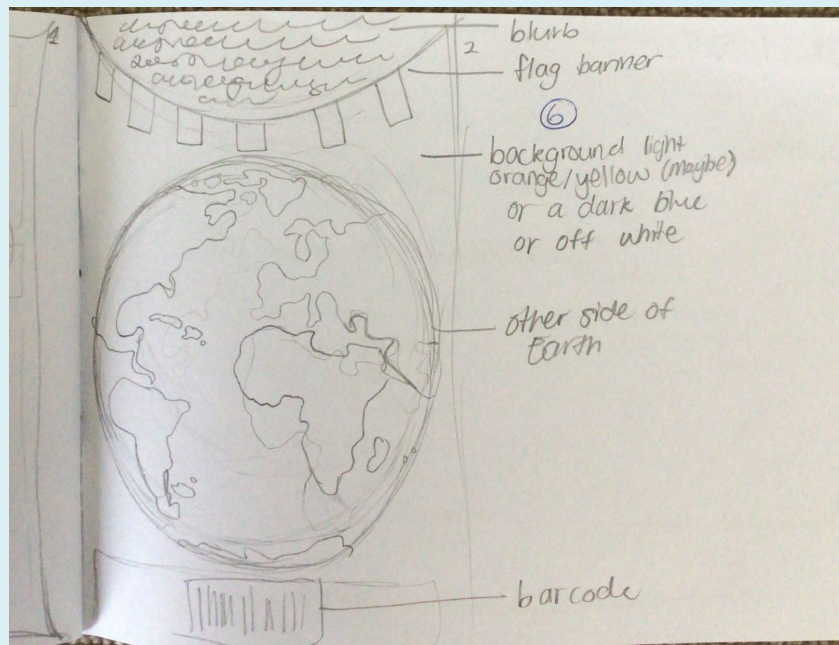 1
2
blurb
flag banner
6
background light
orange/yellow (maybe)
or a dark blue
or off white
other side of
Earth
barcode